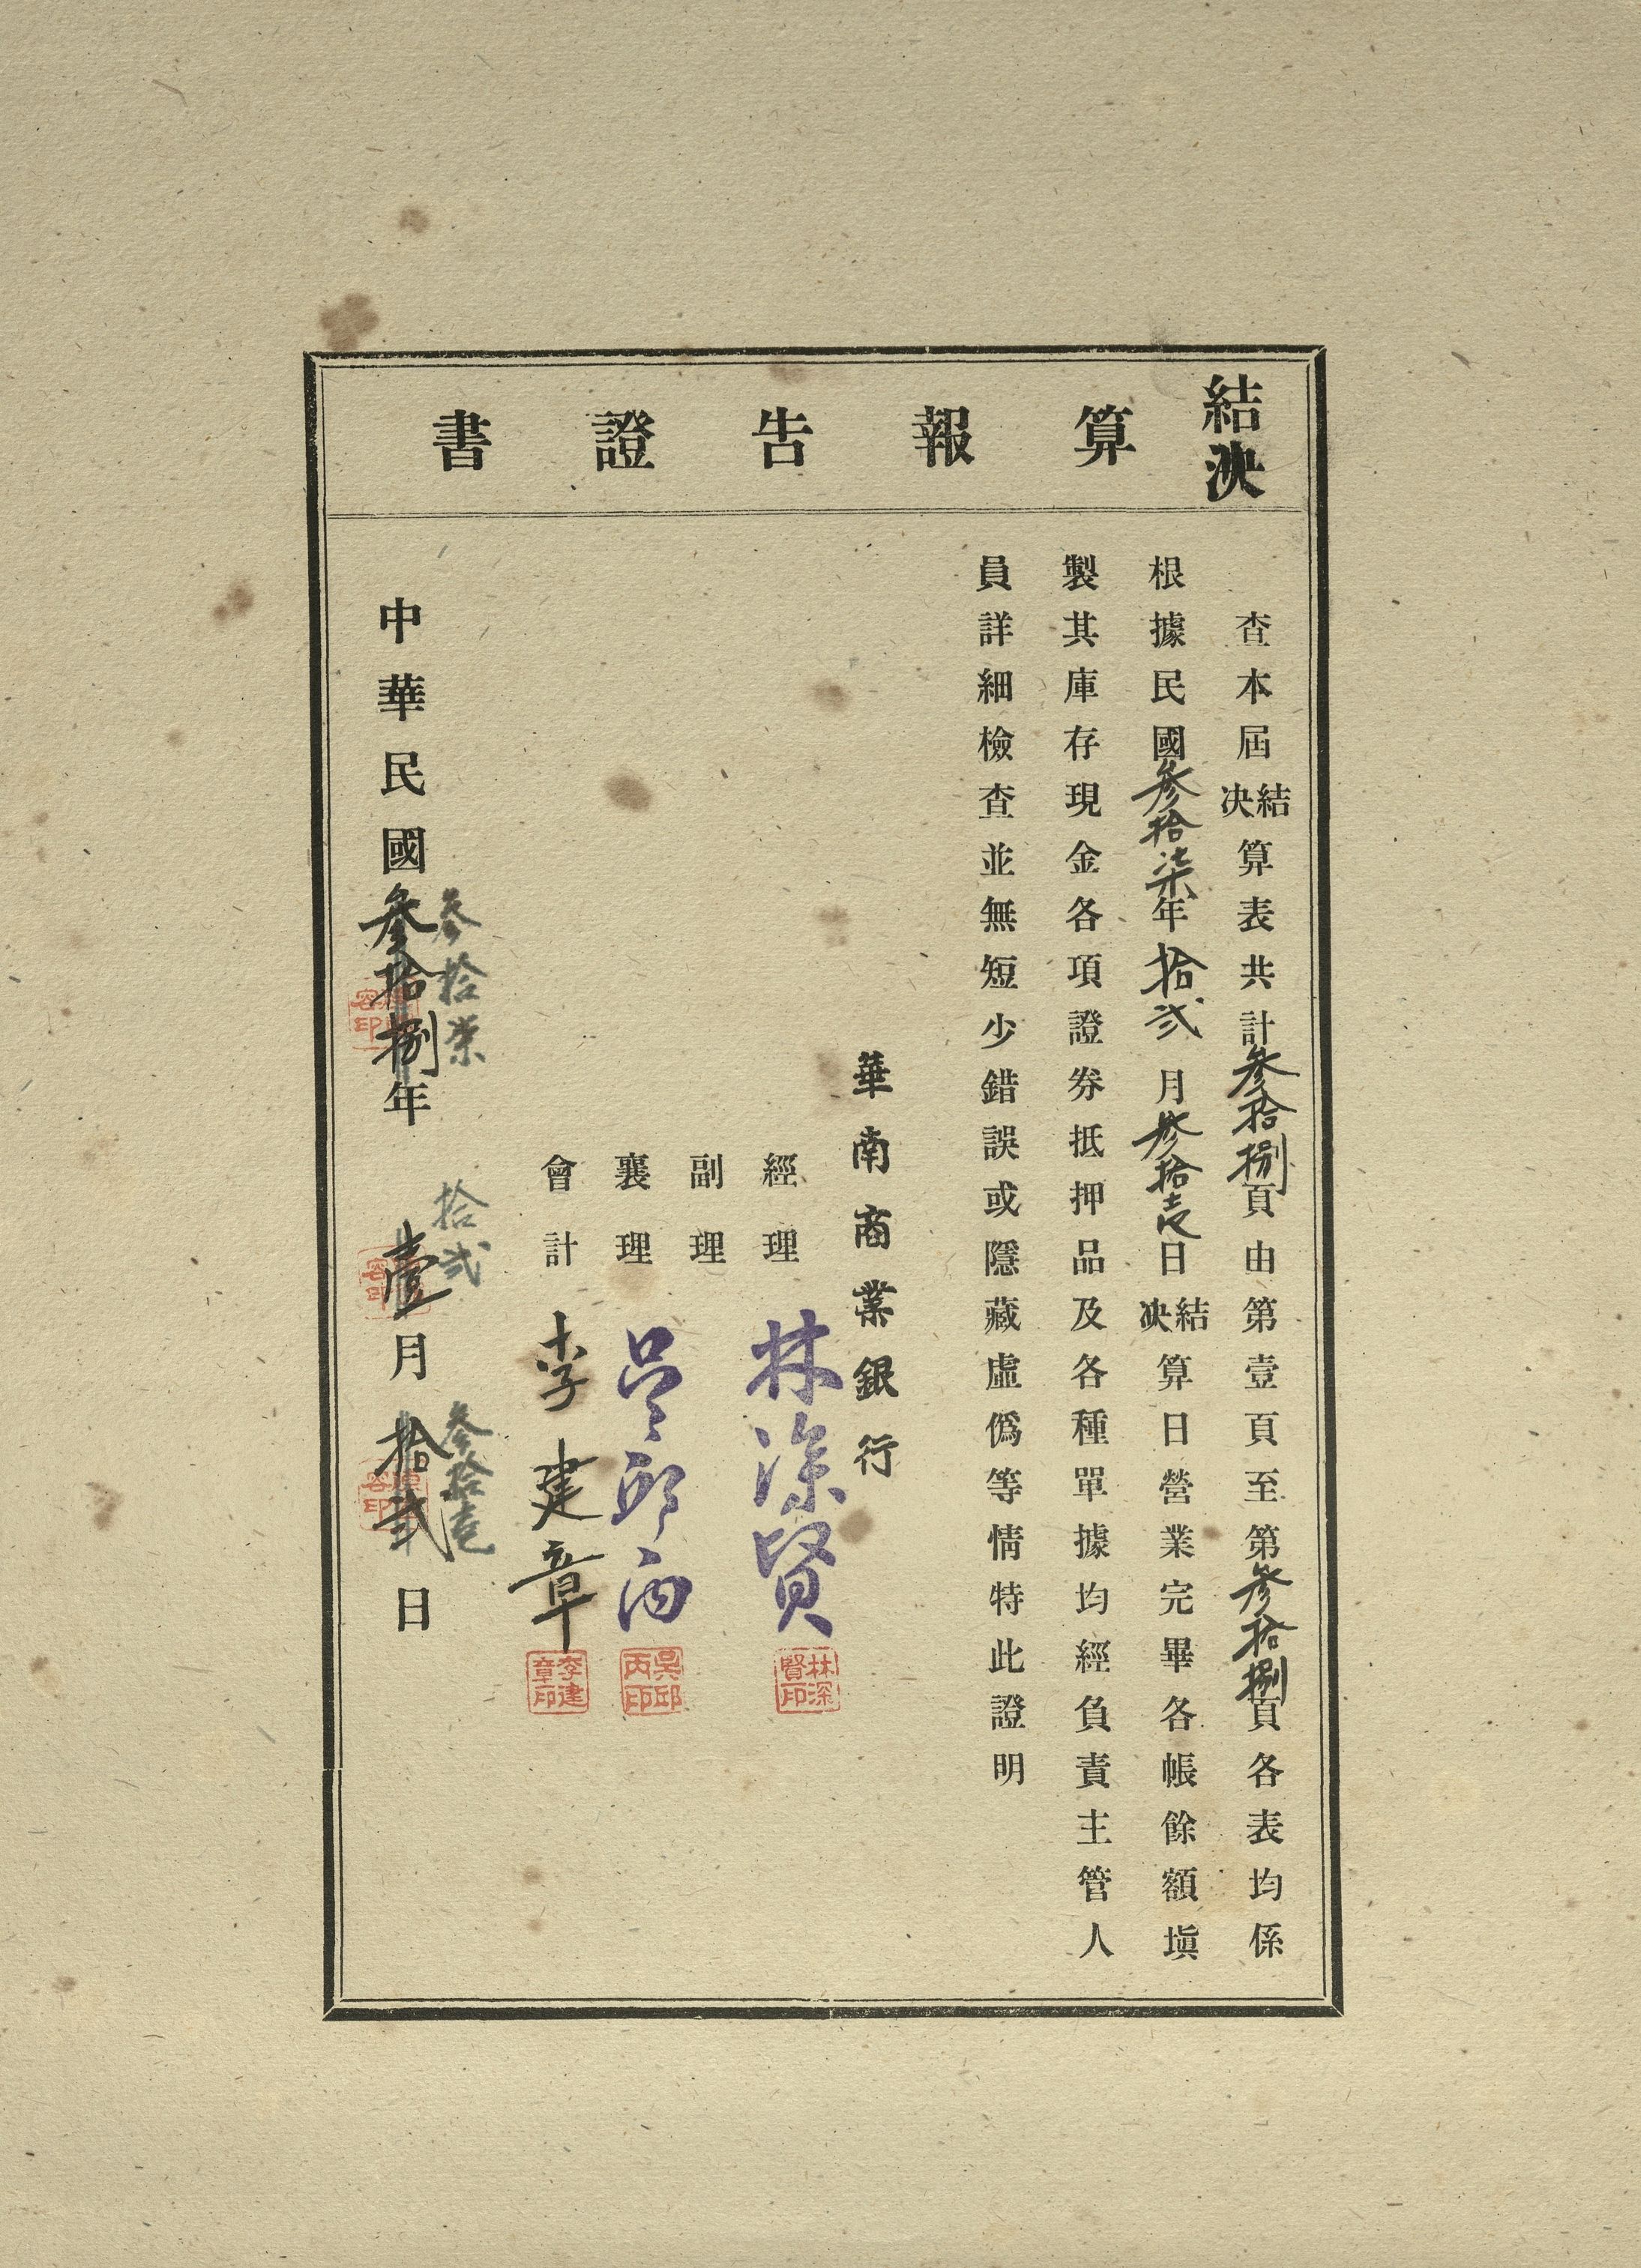 結決算報告證書
查本屆結決算表共計參拾捌頁由第壹頁至第參拾捌頁各表均係
根據民國參拾柒年拾貳月參拾壹日結決算日營業完畢各帳餘額塡
製其庫存現金各項證券抵押品及各種單據均經負責主管人
員詳細檢查並無短少錯誤或隱藏虛僞等情特此證明
華南商業銀行
經理 林深賢
林深賢印
副理
襄理 吳邱丙
吳邱丙印
會計 李建章
李建章印
參拾柒 拾貳 參拾壹
中華民國參拾捌年壹月拾貳日